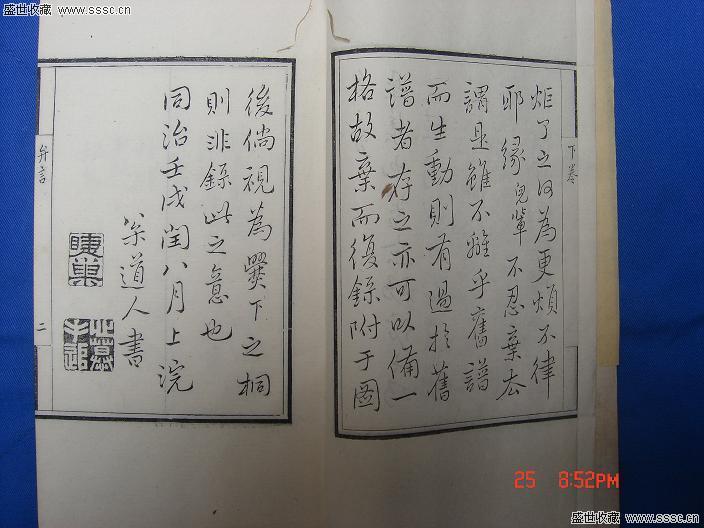 盛世收藏 www.sssc.cn
盛世收藏 www.sssc.cn
下卷
炬了之何為更煩不律
耶緣兒輩不忍棄去
謂是雖不離乎舊譜
而生動則有過於舊
譜者存之亦可以備一
格故棄而復錄附于圖
後倘視為爨下之桐
則非錄此之意也
同治壬戌閏八月上浣
道人書
弁言
二
25 8:52PM
盛世收藏 www.sssc.cn
盛世收藏 www.sssc.cn